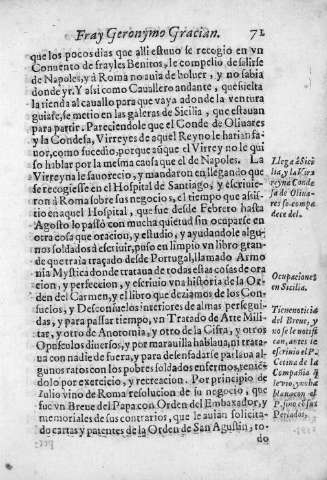 Fray Geronymo Gracian. 71
que los pocos dias que alli estuuo se recogio en vn
Conuento de frayles Benitos, le compelio de salirse
de Napoles, y à Roma no auia de boluer, y no sabia
donde yr. Y assi como Cauallero andante, que suelta
la rienda al cauallo para que vaya adonde la ventura
guiare, se metio en las galeras de Sicilia, que estauan
para partir. Pareciendole que el Conde de Oliuares
y la Condesa, Virreyes de aquel Reyno le harian fa-
uor, como sucedio, porque aũque el Virrey no le qui
so hablar por la mesma causa que el de Napoles. La
Virreyna le fauorecio, y mandaron en llegando que
se recogiesse en el Hospital de Santiago, y escriuie-
ron à Roma sobre sus negocios, el tiempo que asis-
tio en aquel Hospital, que fue desde Febrero hasta
Agosto lo passò con mucha quietud sin ocuparse en
otra cosa que oracion, y estudio, y ayudandole algu-
nos soldados à escriuir, puso en limpio vn libro gran-
de que traia traçado desde Portugal, llamado Armo
nia Mystica donde trataua de todas estas cosas de ora
cion, y perfeccion, y escriuio vna historia de la Or-
den del Carmen, y el libro que deziamos de los Con-
suelos, y Desconsuelos interiores de almas persegui-
das, y para passar tiempo, vn Tratado de Arte Mili-
tar, y otro de Anotomia, y otro de la Cifra, y otros
Opusculos diuersos, y por marauilla hablaua, ni trata-
ua con nadie de fuera, y para desenfadarse parlaua al-
gunos ratos con los pobres soldados enfermos, teniẽ-
dolo por exercicio, y recreacion. Por principio de
Iulio vino de Roma resolucion de su negocio, que
fue vn Breue del Papa con Orden del Embaxador, y
memoriales de sus contrarios, que le auian solicita-
do cartas y patentes de la Orden de San Agustin, to-
do
Llega à Sici
lia, y la Vir
reyna Conde
sa de Oliua-
res se compa
dece del.
Ocupaciones
en Sicilia.
Tiene noticia
del Breue, y
no se le notifi
can, antes le
escriuio el P.
Cetina de la
Compañia q̃
le vio, y no ha
blauan con el
P. sino cõ sus
Perlados,